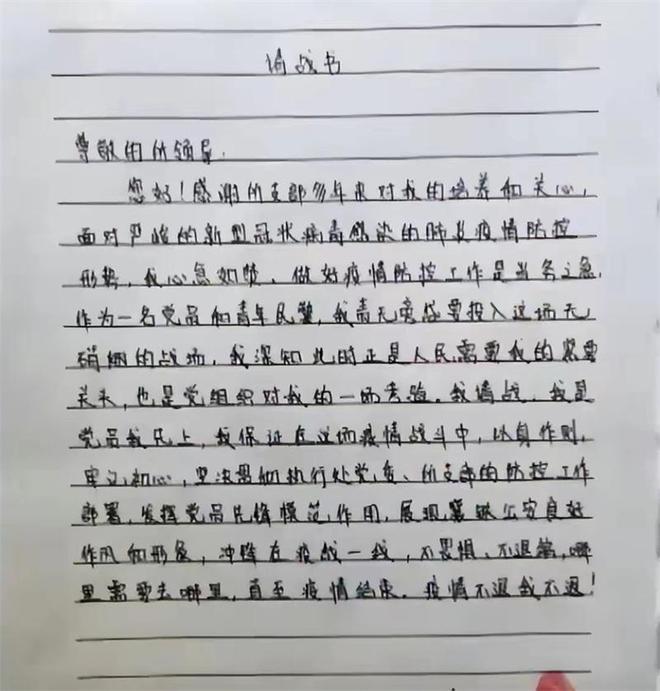 请战书
尊敬的所领导:
您好！感谢所支部多年来对我的培养和关心，
面对严峻的新型冠状病毒感染的肺炎疫情防控
形势，我心急如焚。做好疫情防控工作是当务之急，
作为一名党员和青年民警，我责无旁贷要投入这场无
硝烟的战场，我深知此时正是人民需要我的紧要
关头，也是党组织对我的一场考验。我请战，我是
党员我先上，我保证在这场疫情战斗中，以身作则，
牢记初心，坚决贯彻执行处党委、所支部的防控工作
部署，发挥党员先锋模范作用，展现襄铁公安良好
作风和形象，冲锋在疫战一线，不畏惧、不退缩，哪
里需要去哪里，直至疫情结束。疫情不退我不退！